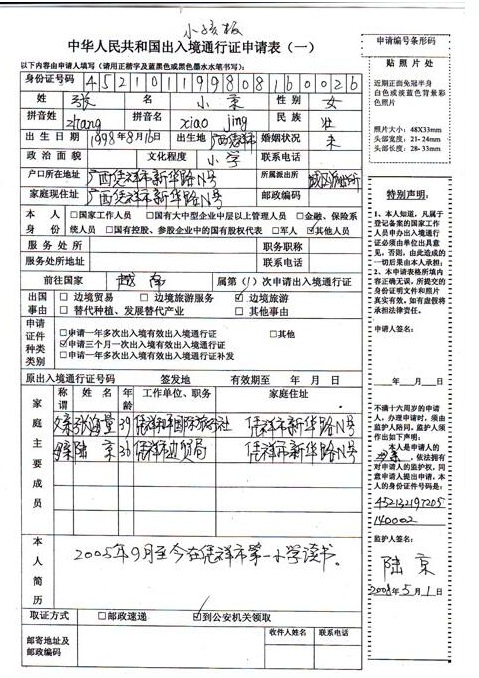 小孩板
中华人民共和国出入境通行证申请表（一）
以下内容由申请人填写（请用正楷字及蓝黑色或黑色墨水水笔书写）：
身份证号码 452101199808160026
姓 张 名 小京 性别 女
拼音姓 zhang 拼音名 xiao jing 民族 壮
出生日期 1998年8月16日 出生地 广西凭祥市 婚姻状况 未
政治面貌 文化程度 小学 联系电话
户口所在地址 广西凭祥市新华路N号 所属派出所 城区派出所
家庭现住址 广西凭祥市新华路N号 邮政编码
本人身份 □国家工作人员 □国有大中型企业中层以上管理人员 □金融、保险系
统人员 □国有控股、参股企业中的国有股权代表 □军人 ☑其他人员
服务处所 职务职称
服务处所地址 联系电话
前往国家 越南 属第（1）次申请出入境通行证
出国事由 □ 边境贸易 □ 边境旅游服务 ☑ 边境旅游
□ 替代种植、发展替代产业 □ 其他事由
申请证件种类类别
□申请一年多次出入境有效出入境通行证 □其他
☑申请三个月一次出入境有效出入境通行证
□申请一年多次出入境有效出入境通行证补发
原出入境通行证号码 签发地 有效期至 年 月 日
家庭主要成员 称谓 姓名 年龄 工作单位、职务 家庭住址
父亲 张海量 39 凭祥市国际旅行社 凭祥市新华路N号
母亲 陆京 36 凭祥市边贸局 凭祥市新华路N号
本人简历
2005年9月至今在凭祥市第一小学读书。
取证方式 □邮政速递 ☑到公安机关领取
邮寄地址及邮政编码 收件人姓名 联系电话
申请编号条形码
贴照片处
近期正面免冠半身
白色或淡蓝色背景彩
色照片
照片大小：48X33mm
头部宽度：21-24mm
头部长度：28-33mm
特别声明：
1、本人知道，凡属于
登记备案的国家工作
人员申办出入境通行
证必须由单位出具意
见，否则，由此造成的
一切后果由本人承担；
2、本申请表格所填内
容正确无误，所提交的
身份证明文件和照片
真实有效。如有虚假将
承担法律责任。
申请人签名：
年 月 日
不满十六周岁的申请
人，办理申请时，须由
监护人陪同。监护人须
作出如下声明：
本人是申请人的
，依法拥有
对申请人的监护权，同
意申请人提出申请，本
人的身份证件号码是：
452132197205
140002
监护人签名：
陆京
2008年5月1日